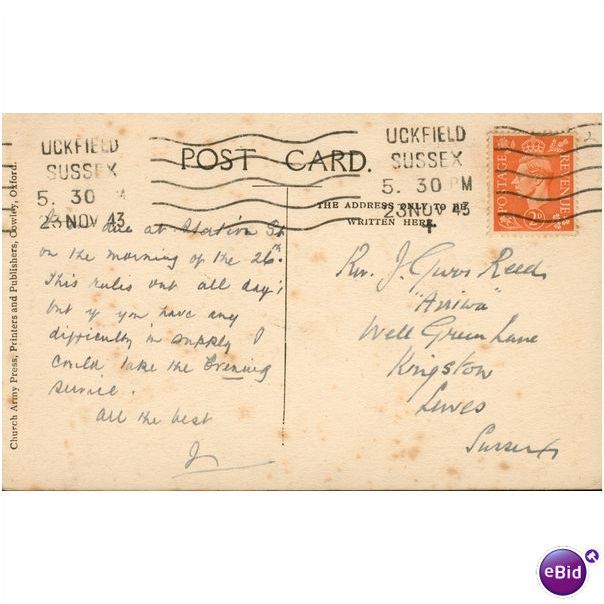 UCKFIELD
SUSSEX
5. 30 PM
23 NOV 43
UCKFIELD
SUSSEX
5. 30 PM
23 NOV 43
POST CARD.
THE ADDRESS ONLY TO BE
WRITTEN HERE.
POSTAGE
REVENUE
Church Army Press, Printers and Publishers, Cowley, Oxford.
due at Station St
on the morning of the 26th.
This rules out all day;
but if you have any
difficulty in supply I
could take the Evening
service.
All the best
J
Rev. J. Reed
Well Green Lane
Kingston
Lewes
Sussex
eBid